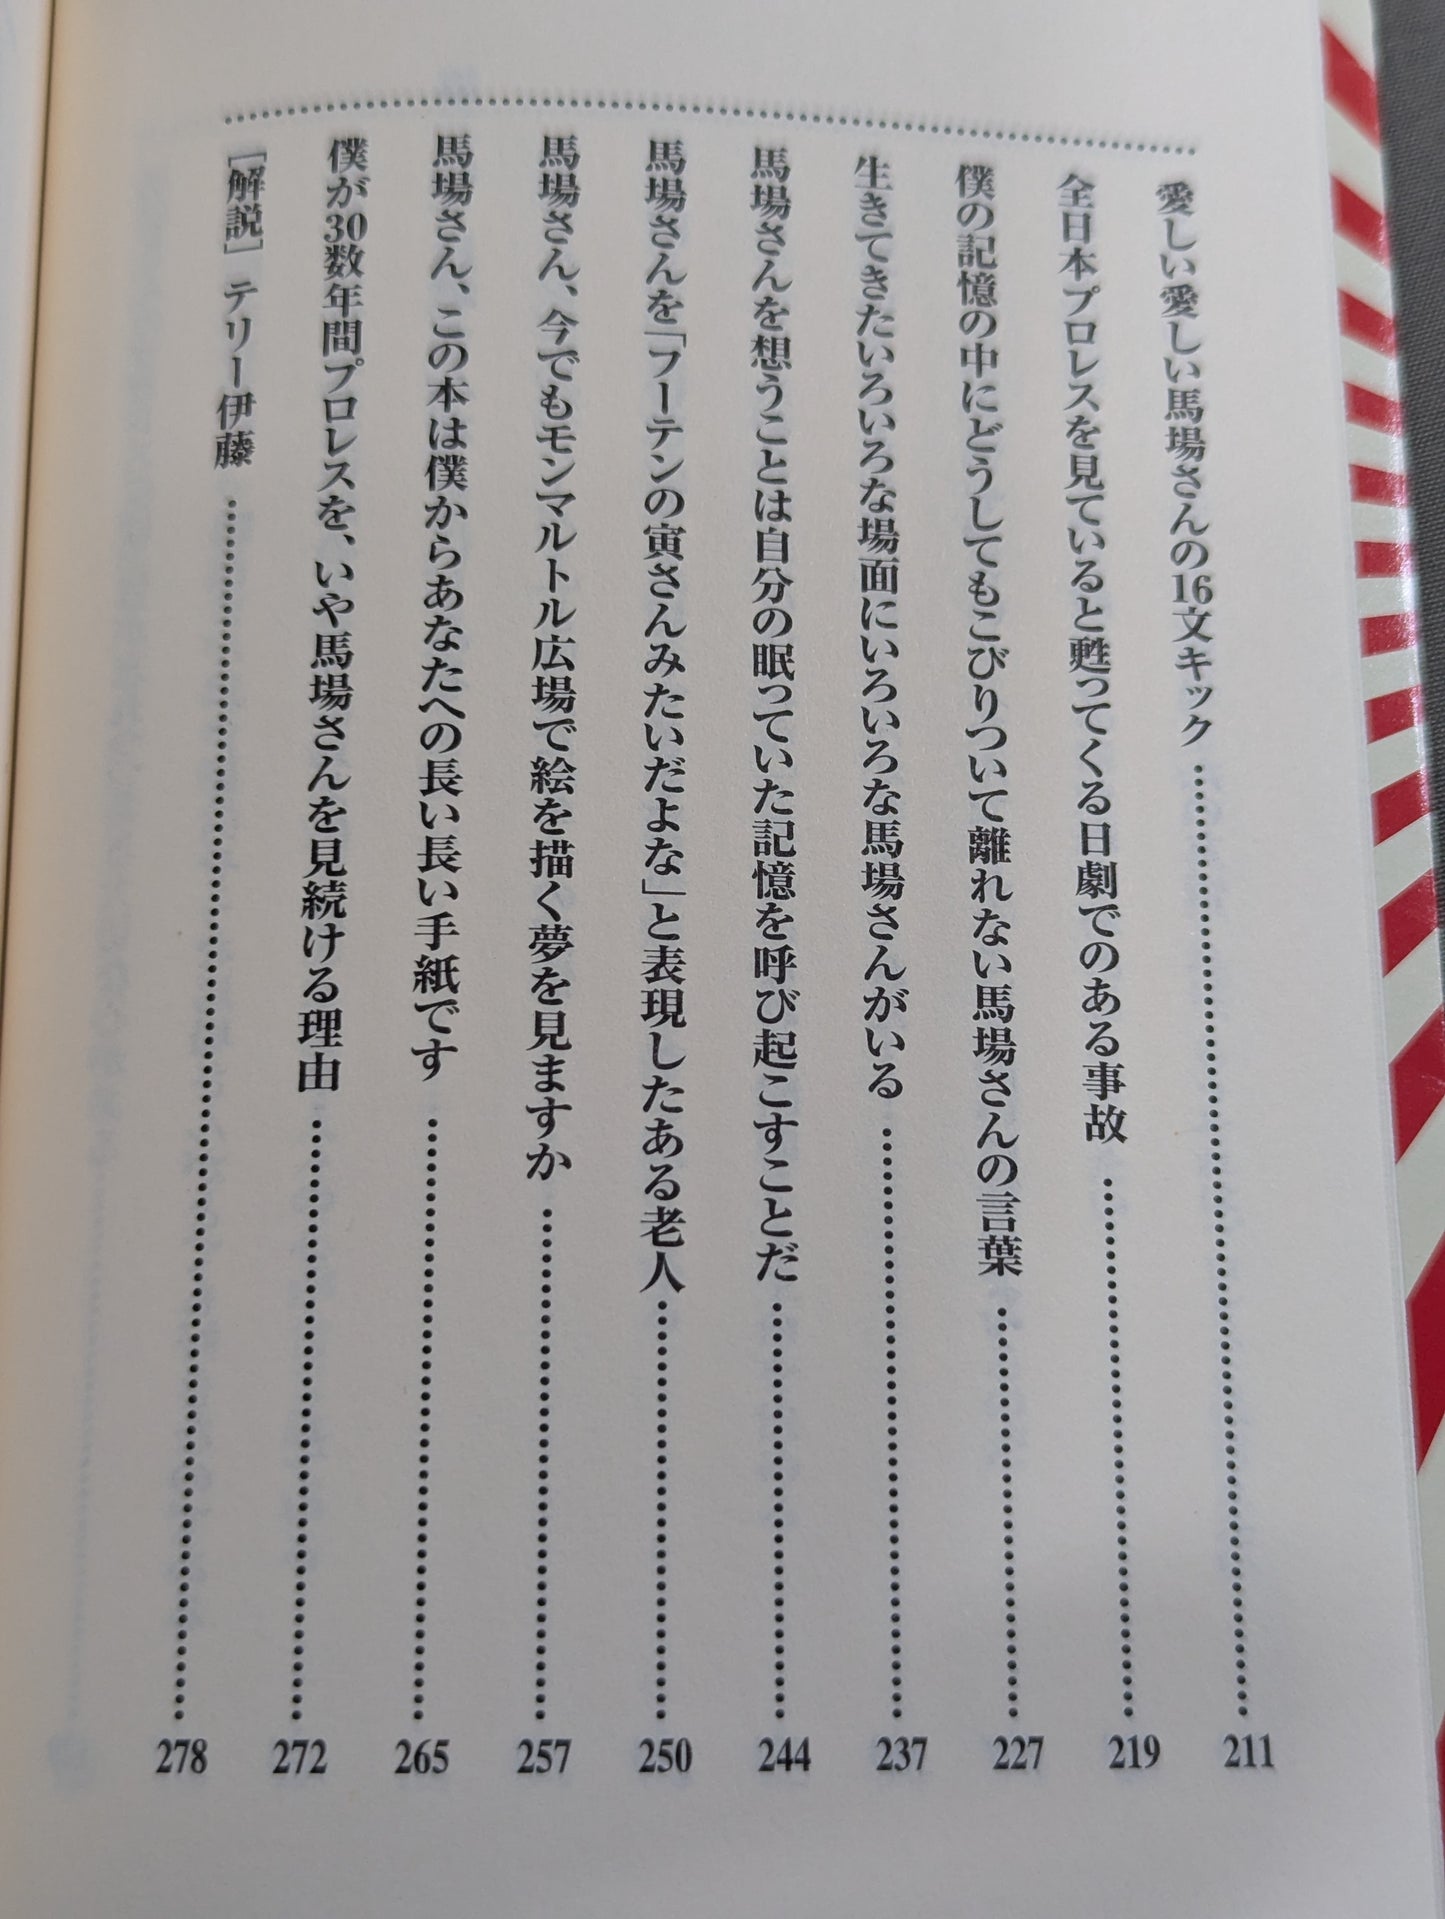 愛しい愛しい馬場さんの16文キック……211
全日本プロレスを見ていると甦ってくる日劇でのある事故……219
僕の記憶の中にどうしてもこびりついて離れない馬場さんの言葉……227
生きてきたいろいろな場面にいろいろな馬場さんがいる……237
馬場さんを想うことは自分の眠っていた記憶を呼び起こすことだ……244
馬場さんを「フーテンの寅さんみたいだよな」と表現したある老人……250
馬場さん、今でもモンマルトル広場で絵を描く夢を見ますか……257
馬場さん、この本は僕からあなたへの長い長い手紙です……265
僕が30数年間プロレスを、いや馬場さんを見続ける理由……272
［解説］ テリー伊藤……278